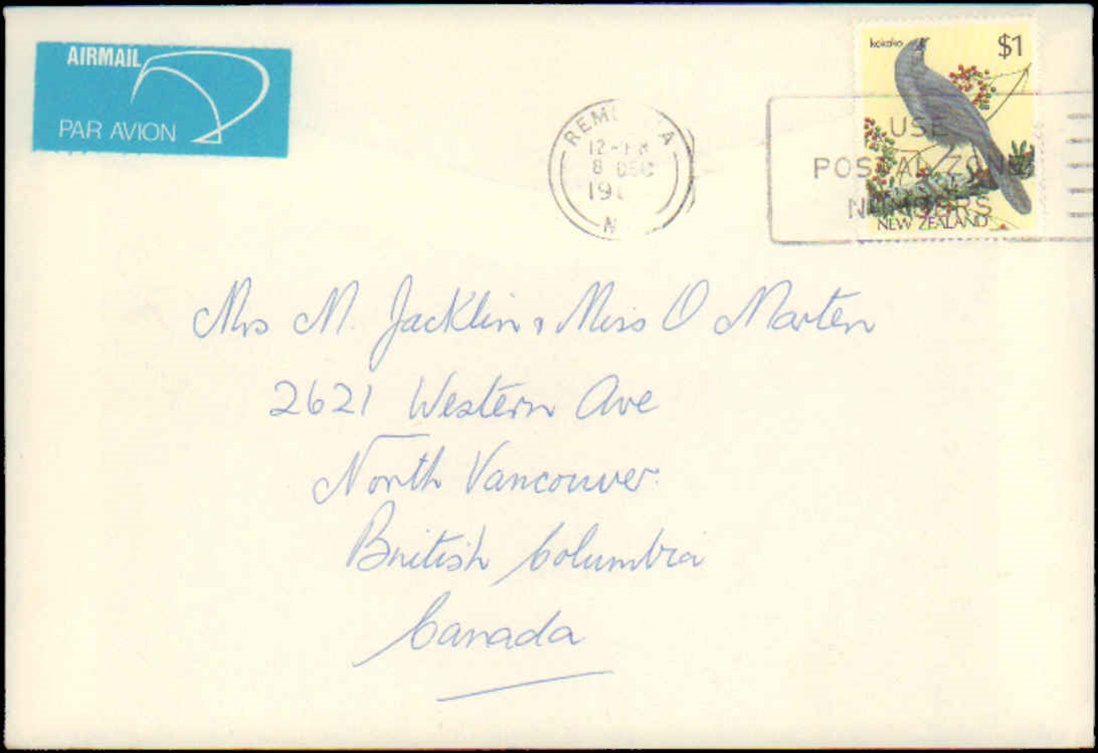 AIRMAIL
PAR AVION
kokako $1
12-PM
8 DEC
USE
POSTAL ZONE
NUMBERS
NEW ZEALAND
Mrs M. Jacklin & Miss O Marten
2621 Western Ave
North Vancouver
British Columbia
Canada